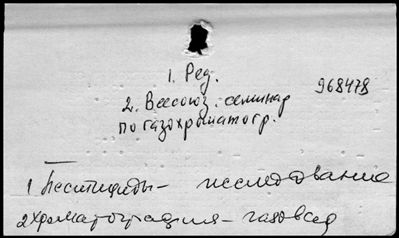 1. Ред.
2. Всесоюз. семинар 968478
по газохроматогр.
1 Пестициды – исследование
2 Хроматография – газовая